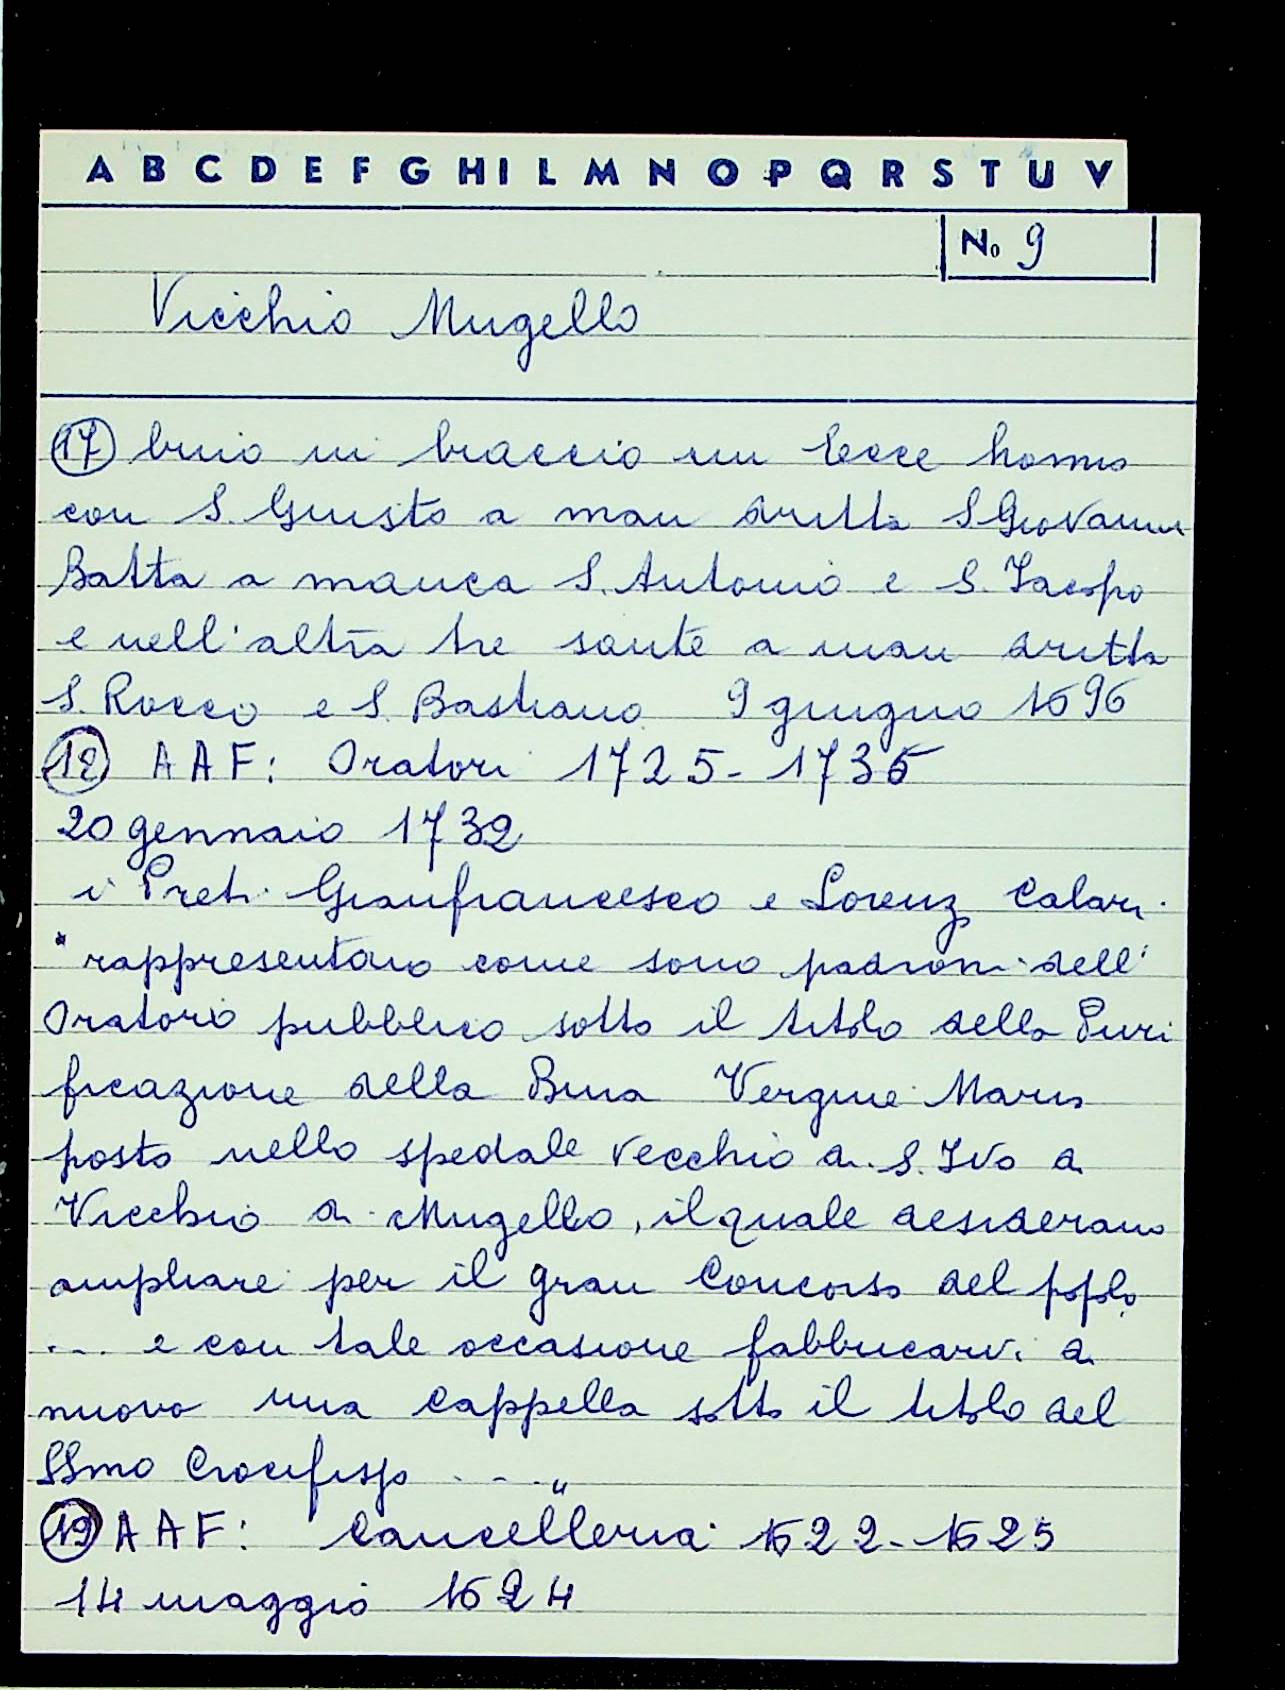 A B C D E F G H I L M N O P Q R S T U V
No 9
Vicchio Mugello
17 buio in braccio un Ecce homo
con S. Giusto a man dritta S. Giovanni
Batta a manca S. Antonio e S. Jacopo
e nell'altra tre sante a man dritta
S. Rocco e S. Bastiano 9 giugno 1696
18 AAF: Oratori 1725-1736
20 gennaio 1732
i Preti Gianfrancesco e Lorenz Calari
"rappresentano come sono padroni dell'
Oratorio pubblico sotto il titolo della Puri
ficazione della Bma Vergine Maria
posto nello spedale vecchio di S. Ivo a
Vicchio di Mugello, il quale desiderano
ampliare per il gran concorso del popolo
.... e con tale occasione fabbricarvi di
nuovo una cappella sotto il titolo del
SSmo Crocifisso ...."
19 AAF: Cancelleria 1622-1625
14 maggio 1624